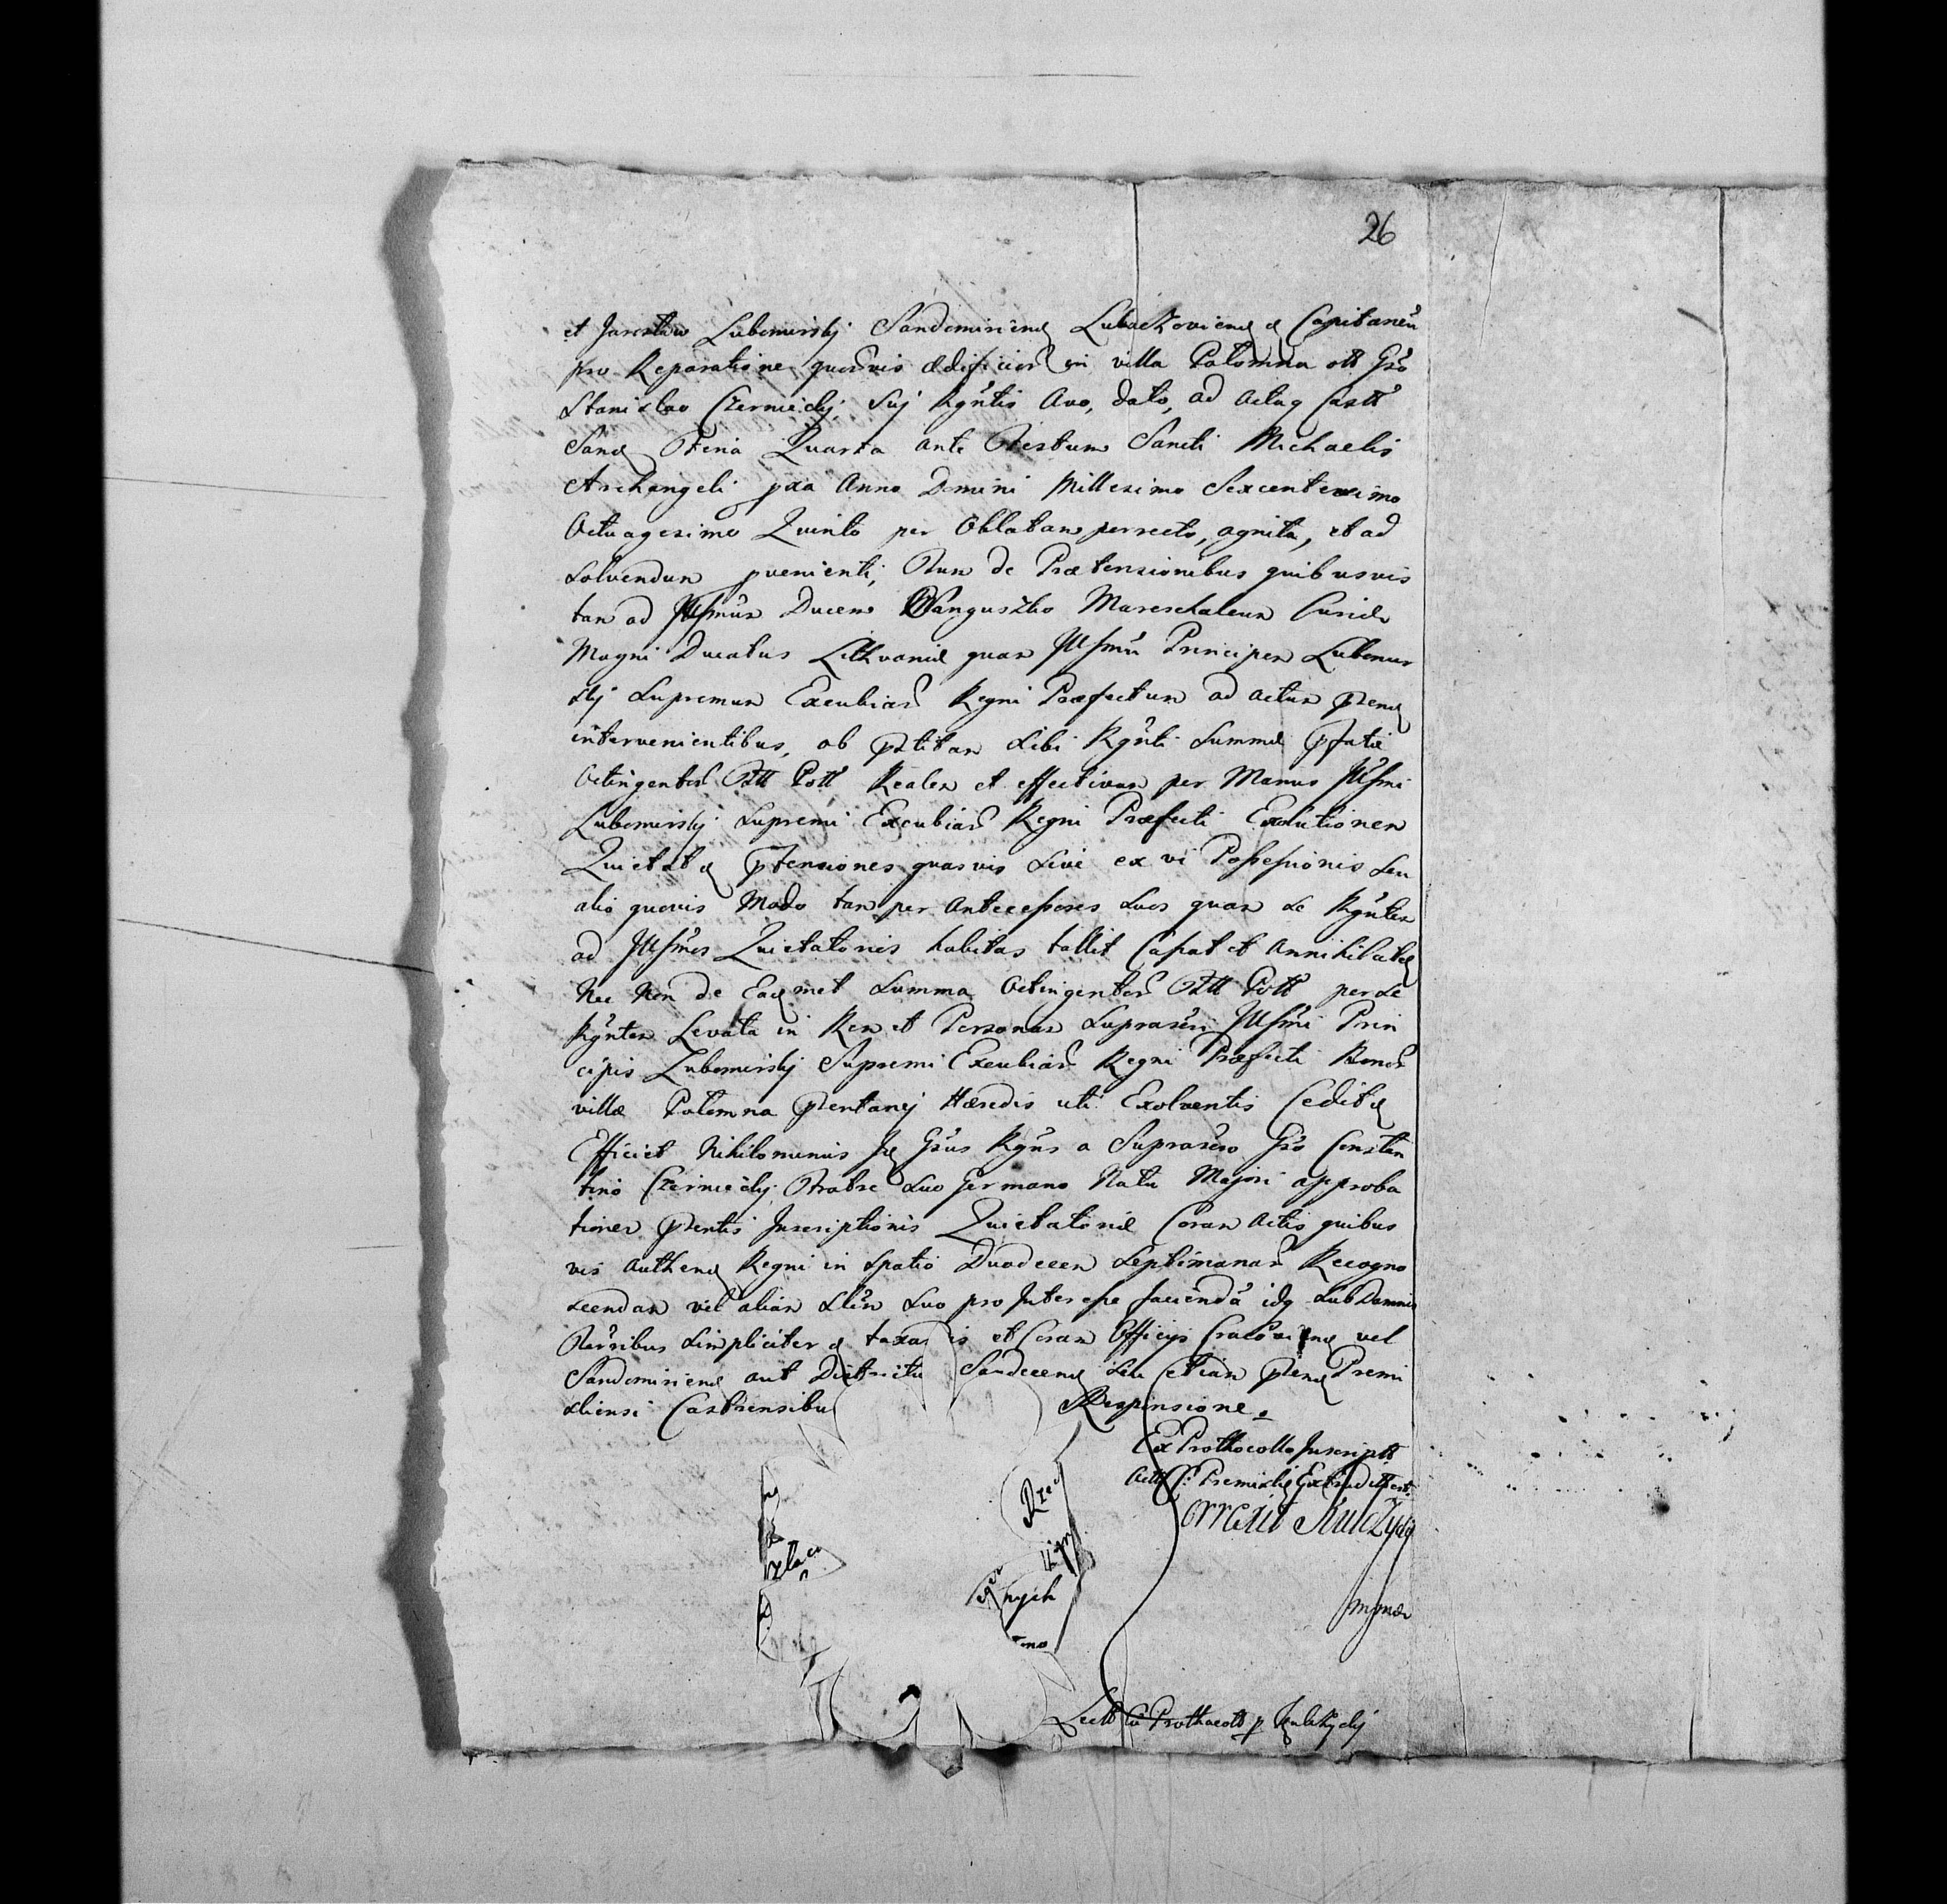 26
et Jarosław Lubomirskj Sandomirienq Lubaczovienq q Capitaneū
pro Reparatione quorūvis ædificiorū in villa Polomna ott Gro
Stanislao Czerniecki, Suj Rgntis Avo, dato, ad Actaq Castt
Sanq Feria Quarta ante Festum Sancti Michaelis
Archangeli pxa Anno Domini Millesimo Sexcentesimo
Octuagesimo Quinto per Oblatam perrecto, agnita, et ad
Solvendum pvenienti, Tum de Prætensionibus quibusvis
tam ad Illsmum Ducem Sanguszko Mareschalcum Curiæ
Magni Ducatus Lithvaniæ quam Illsmū Principem Lubomir
skj Supremum Excubiarū Regni Præfectum ad actum pzenq
intervenientibus, ob pstitam Sibi Rgnti Summæ pfatæ
Octingentorū Fltt Poll Realem et effectivam per Manus Illsmi
Lubomirskj Supremi Excubiarū Regni Præfecti Exolutionem
Quietat q ptensiones quasvis sive ex vi Possessionis seu
alio quovis Modo tam per Antecessores suos quam se Rgntem
ad Illsmos Quietatorios habitas tollit Cassat et Annihilatq
Nec Non de Eaqmet Summa Octingentorū Fltt Poll per se
Rgntem Levata in Rem et Personam Suprascri Illsmi Prin
cipis Lubomirskj Supremi Excubiarū Regni Præfecti Bonorū
villæ Polomna pzentanej Hæredis uti Exolventis Ceditq
Efficiet Nihilominus Iq Grus Rgns a Suprascro Gro Constan
tino Czerniecki Fratre Suo Germano Natu Majori approba
tionem pzentis Inscriptionis Quietatoriæ Coram Actis quibus
vis authenq Regni in Spatio Duodecem Septimanarū Recogno
scendam vel aliam Suo pro Interesse faciendā idq Sub Damnis
Terribus Simpliciter q taxa is et Coram Officijs Cracovienq vel
Sandomirienq aut Districtu Sandecenq seu etiam pzenq Premi
sliensi Castrensibu Responsione.
Ex Prothocollo Inscriptt
Actt C. Premislq Extradittest.
Correxit Kulczycki
mpria
Lectt Cū Prothocott p Kulczycki